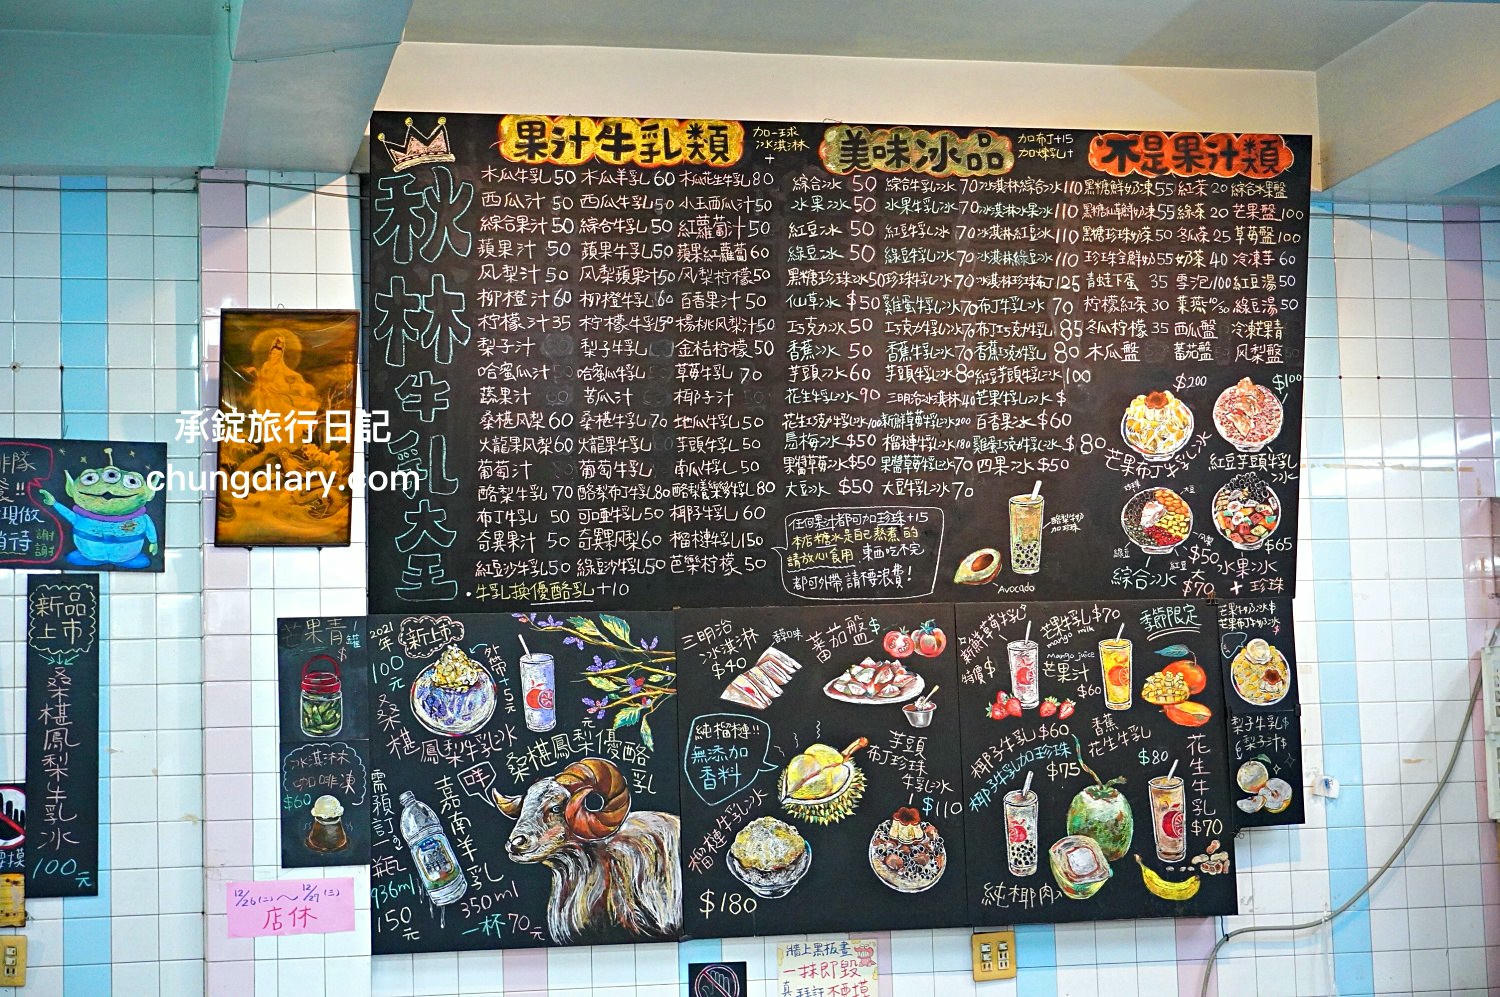 果汁牛乳類
加一球
冰淇淋
+
美味冰品
加布丁+15
加煉乳+
不是果汁類
秋林牛乳大王
木瓜牛乳 50 木瓜羊乳 60 木瓜花生牛乳 80
西瓜汁 50 西瓜牛乳 50 小玉西瓜汁 50
綜合果汁 50 綜合牛乳 50 紅蘿蔔汁 50
蘋果汁 50 蘋果牛乳 50 蘋果紅蘿蔔 60
风梨汁 50 风梨蘋果汁 50 风梨柠檬 50
柳橙汁 60 柳橙牛乳 60 百香果汁 50
柠檬汁 35 柠檬牛乳 50 楊桃风梨汁 50
梨子汁 梨子牛乳 金桔柠檬 50
哈蜜瓜汁 哈蜜瓜牛乳 草莓牛乳 70
蔬果汁 苦瓜汁 椰子汁
桑椹风梨 60 桑椹牛乳 70 地瓜牛乳 50
火龍果风梨 60 火龍果牛乳 芋頭牛乳 50
葡萄汁 葡萄牛乳 南瓜牛乳 50
酪梨牛乳 70 酪梨布丁牛乳 80 酪梨養樂多牛乳 80
布丁牛乳 50 可哑牛乳 50 椰子牛乳 60
奇異果汁 50 奇異果风梨 60 榴槤牛乳 150
紅豆沙牛乳 50 綠豆沙牛乳 50 芭樂柠檬 50
•牛乳換優酪乳+10
綜合冰 50 綜合牛乳冰 70 冰淇淋綜合冰 110
水果冰 50 水果牛乳冰 70 冰淇淋水果冰 110
紅豆冰 50 紅豆牛乳冰 70 冰淇淋紅豆冰 110
綠豆冰 50 綠豆牛乳冰 70 冰淇淋綠豆冰 110
黑糖珍珠冰 50 珍珠牛乳冰 70 冰淇淋珍珠布丁 125
仙草冰 $50 雞蛋牛乳冰 70 布丁牛乳冰 70
巧克力冰 50 巧克力牛乳冰 70 布丁巧克力牛乳 85
香蕉冰 50 香蕉牛乳冰 70 香蕉巧克力牛乳 80
芋頭冰 60 芋頭牛乳冰 80 紅豆芋頭牛乳冰 100
花生牛乳冰 90 三明治冰淇淋 40 芒果牛乳冰 $
花生巧克力牛乳冰 100 新鮮草莓牛乳冰 200 百香果冰 $60
烏梅冰 $50 榴槤牛乳冰 180 雞蛋巧克力牛乳冰 $80
果醬草莓冰 $50 果醬草莓牛乳冰 70 四果冰 $50
大豆冰 $50 大豆牛乳冰 70
黑糖鮮奶凍 55 紅茶 20 綜合水果盤
黑糖仙草鮮奶凍 55 綠茶 20 芒果盤 100
黑糖珍珠奶茶 50 冬瓜茶 25 草莓盤 100
珍珠全鮮奶 55 奶茶 40 冷凍芋 60
青蛙下蛋 35 雪泡 100 紅豆湯 50
柠檬紅茶 30 菜燕 10/30 綠豆湯 50
冬瓜柠檬 35 西瓜盤 冷凍芒果青
木瓜盤 蕃茄盤 风梨盤
任何果汁都可加珍珠+15
本店糖水是自己熬煮的
請放心食用 東西吃不完
都可外帶 請不要浪費!
酪梨牛奶
加珍珠
Avocado
$200
芒果布丁牛乳冰
$100
紅豆芋頭牛乳冰
$50
綜合冰 大$70
$65
水果冰
+ 珍珠
2021年
新上市
100元
外帶+5元
桑椹鳳梨牛乳冰
桑椹鳳梨優酪乳
需預訂 2瓶
936ml
150元
咩
嘉南羊乳
350ml
一杯70元
三明治
冰淇淋
$40
蕃茄盤 $
純榴槤!!
無添加
香料
榴槤牛乳冰
$180
芋頭
布丁珍珠
牛乳冰
$110
新鮮草莓牛乳
特價$
芒果牛乳 $70
mango milk
mango juice
芒果汁
$60
季節限定
椰子牛乳 $60
椰子牛乳加珍珠
$75
純椰肉
香蕉
花生牛乳
$80
花生牛乳
$70
芒果牛奶冰$
芒果布丁牛奶冰$
梨子牛乳$
梨子汁$
芒果青
1罐
$
冰淇淋
咖啡凍
$60
12/26(二)~12/27(三)
店休
新品
上市
桑椹鳳梨牛乳冰
100元
排隊
現做
稍待
謝謝
牆上黑板畫
一抹即毀
承錠旅行日記
chungdiary.com